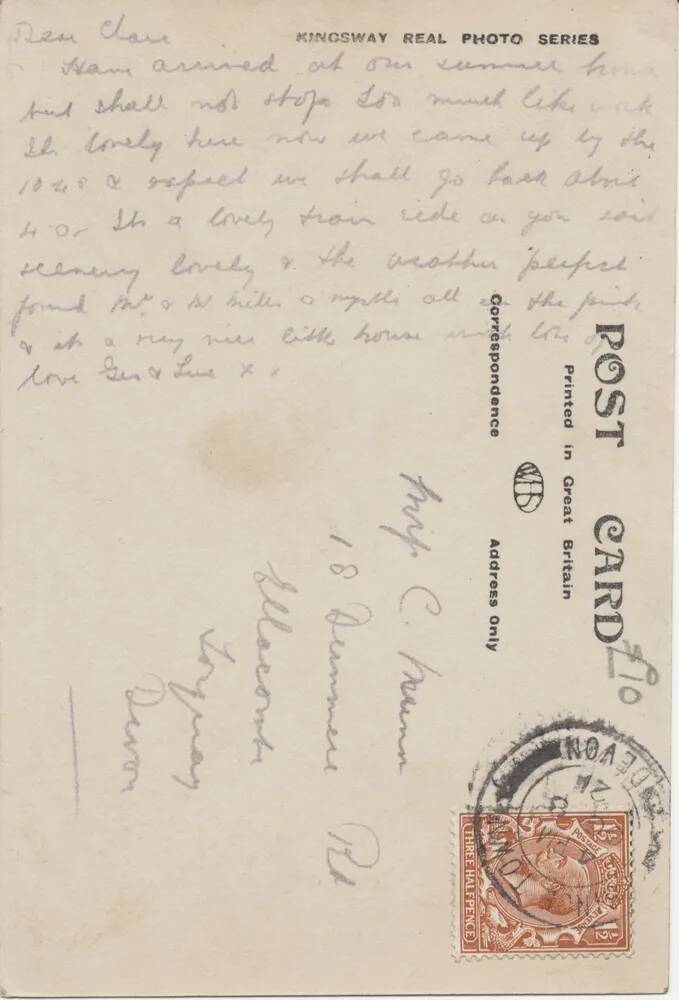 KINGSWAY REAL PHOTO SERIES
Dear Clare
Have arrived at our summer house
but shall not stop Too much like work
Its lovely here now we came up by the
10.45 & expect we shall go back about
4 o- Its a lovely train ride as you said
scenery lovely & the weather perfect
found Mr & M Mills & Myrtle all in the pink
& its a very nice little house with lots of
love & x
POST CARD
Printed in Great Britain
Correspondence
Address Only
WHS
Miss C. Munn
18 Dunmere Rd
Ellacombe
Torquay
Devon
£10
DEVON
POSTAGE
REVENUE
THREE HALFPENCE
1½
1½